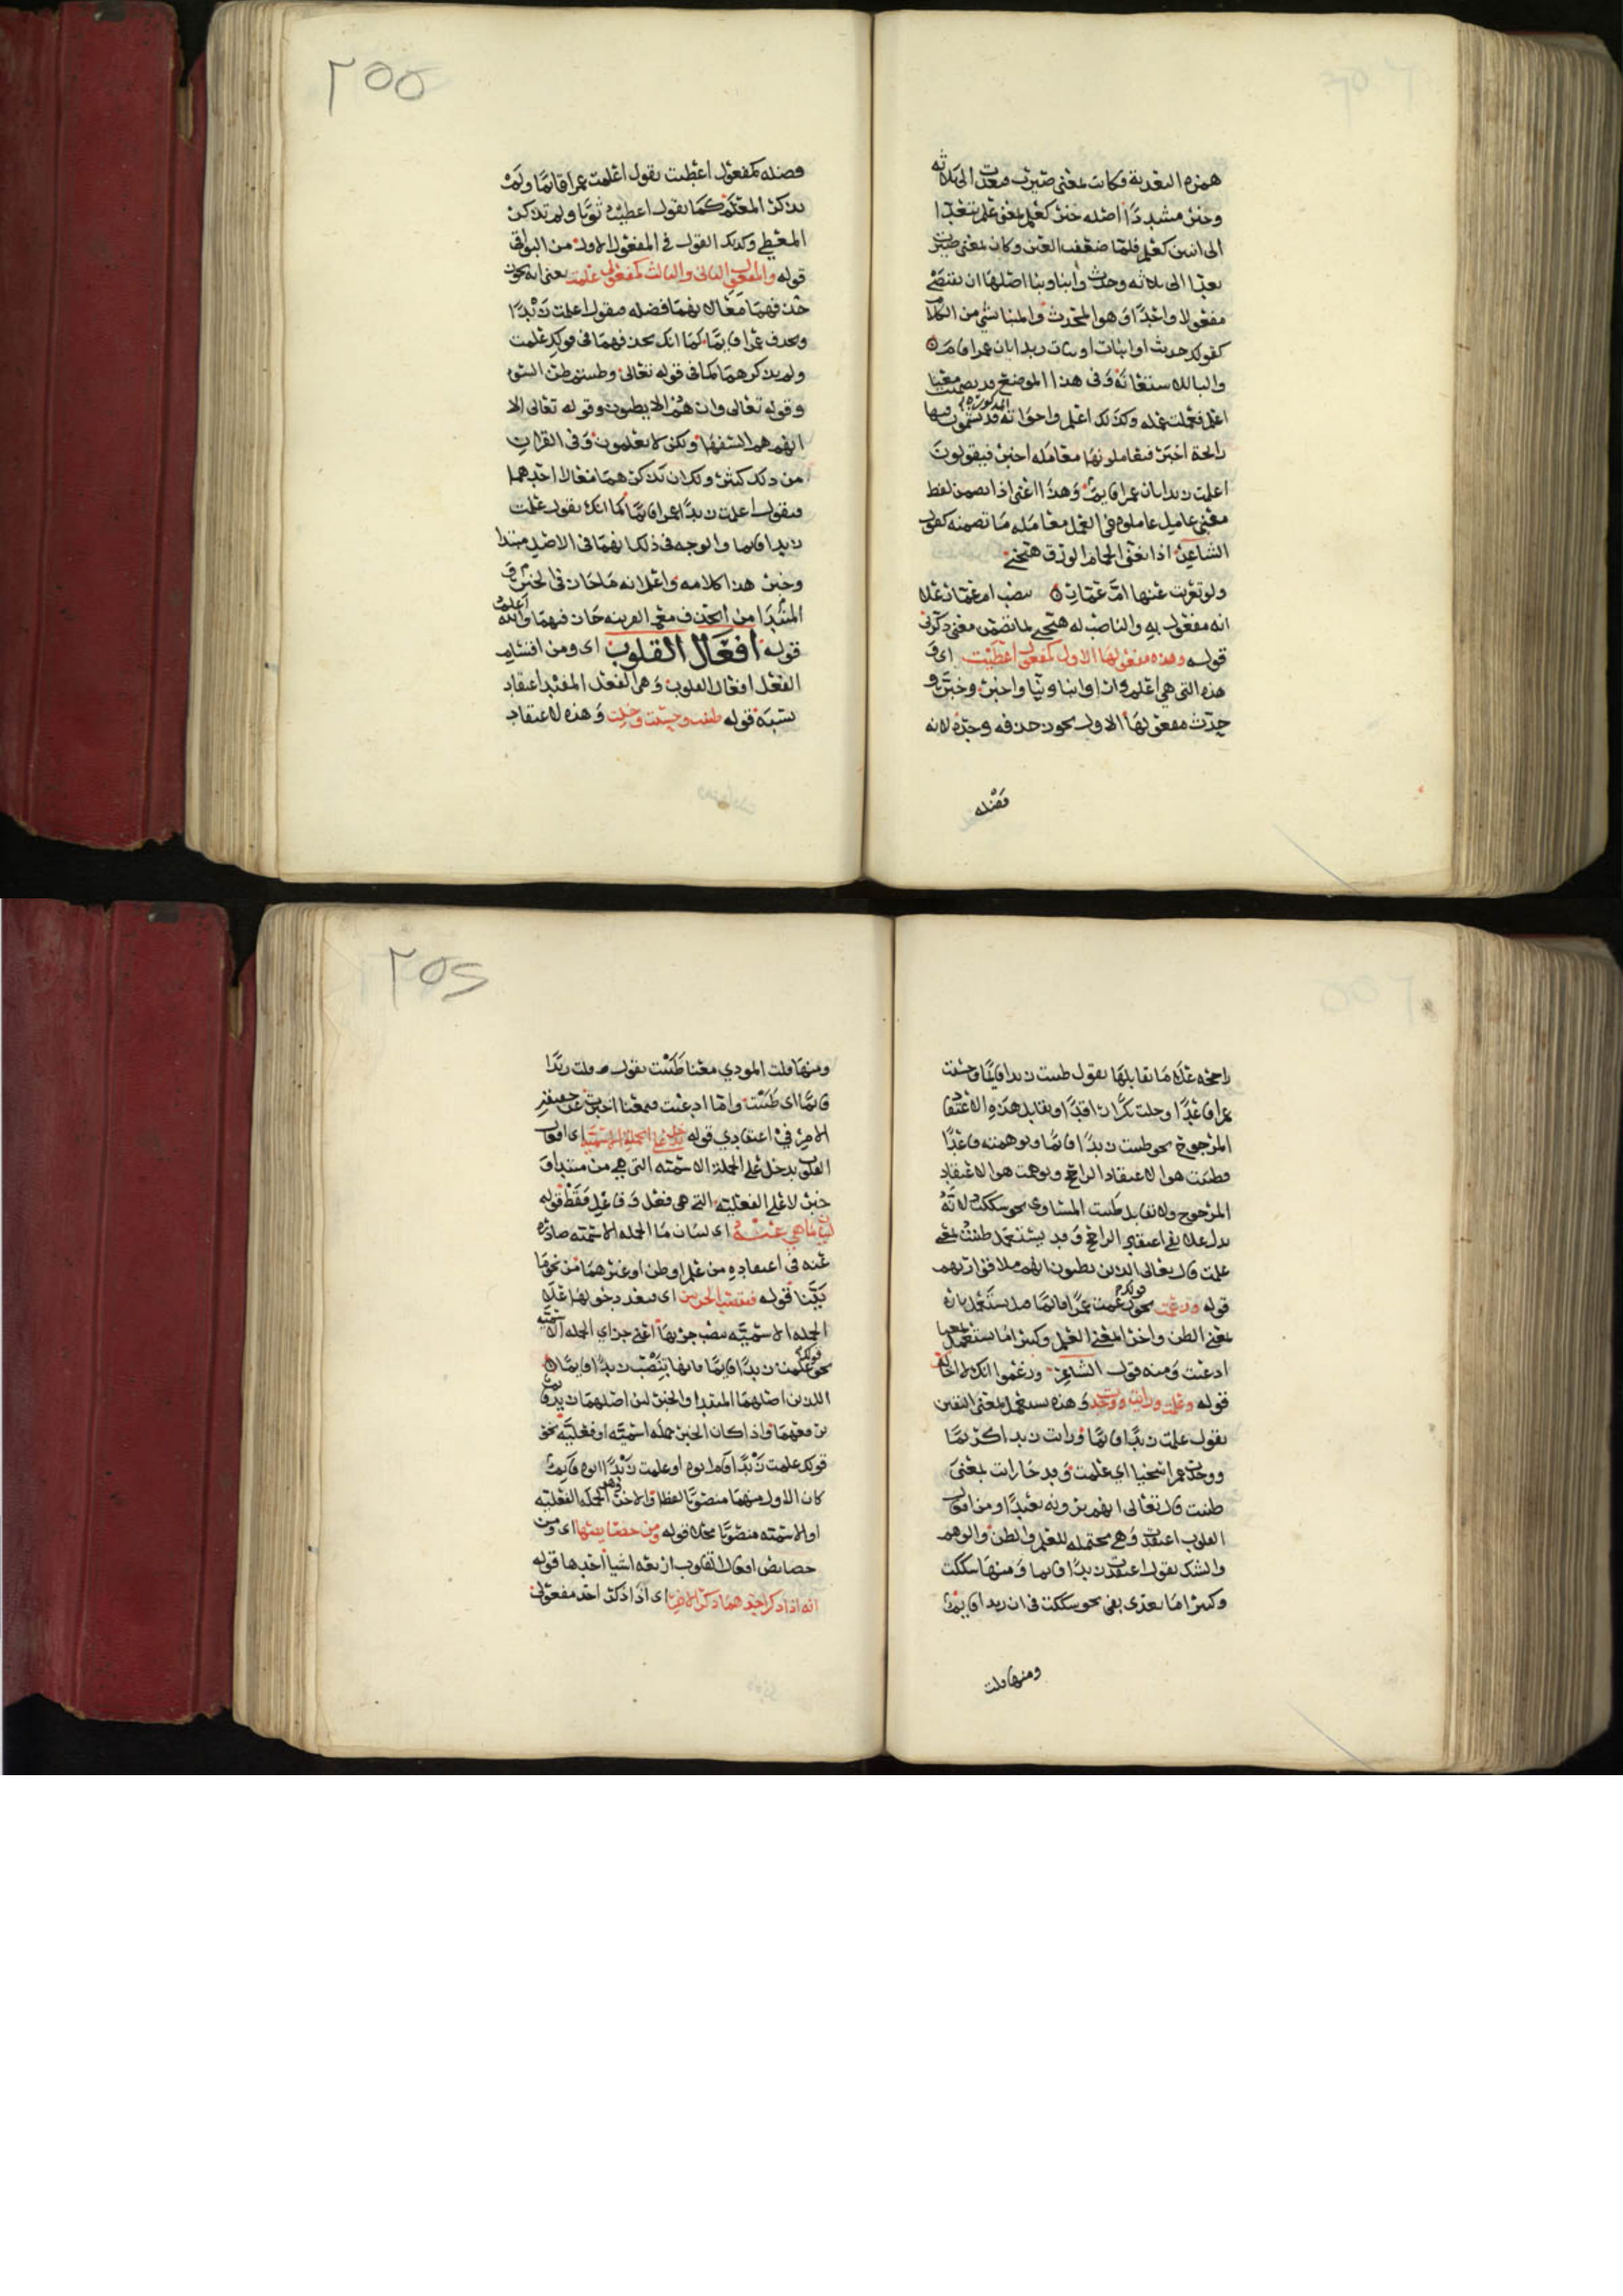 همزه التعدية فكانت بمعنى صيرت فتعدت الى ثلاثه
وخبر مشددا اصله خبر كعلم بمعنى علم يتعدا
الى اثنين كعلم فلما ضعفت العين وكان بمعنى صيرت
تعدا الى ثلاثه وحدث وانبا ونبا اصلها ان تقتضي
مفعولا واحدا وهو المحدث والمنبا شي من الكلام
كقولك حدثت او انبات او نبات زيدا بان عمرا قام
والبا للاستغاثه وفي هذا الموضع قد يضمنت معنى
اعلم فعملت عمله وكذلك اعلم واخواته المذكوره قد يشمون فيها
رائحة اخبر فيعاملونها معامله اخبر فيقولون
اعلمت زيدا بان عمرا قايم وهذا اعني اذا تضمن لفظ
معنى عامل عاملوه في العمل معامله ما تضمنه كقول
الشاعر اذا تغنى الحمام الورق هيجني
ولو تعزيت عنها ام عمار نصب ام عمار على
انه مفعول به والناصب له هيجني لما تضمن معنى ذكرني
قوله وهذه مفعولها الاول كمفعول اعطيت اي و
هذه التي هي اعلم وارا وانبا ونبا واخبر وخبر و
حدث مفعولها الاول يجوز حذفه وحده لانه
فضله
٢٥٥
فضله كمفعول اعطيت تقول اعلمت عمرا قائما ولم
تذكر المعلم كما تقول اعطيت ثوبا ولم تذكر
المعطي وكذلك القول في المفعول الاول من البواقي
قوله والمفعول الثاني والثالث كمفعولي علمت يعني انه يجوز
حذفهما معا لانهما فضله فتقول اعلمت زيدا
وتحذف عمرا قايما كما انك تحذفهما في قولك علمت
ولم تذكرهما كما في قوله تعالى وظننتم ظن السوء
وقوله تعالى وان هم الا يظنون وقوله تعالى الا
انهم هم السفها ولكن لا يعلمون وفي القران
من ذلك كثير ولك ان تذكرهما معا لا احدهما
فتقول اعلمت زيدا عمرا قائما كما انك تقول علمت
زيدا قايما والوجه في ذلك انهما في الاصل مبتدا
وخبر هذا كلامه واعلم انه ما جاز في الخبر و
المبتدا من الحذف مع القرينه جاز فيهما والله اعلم
قوله افعال القلوب اي ومن اقسام
الفعل افعال القلوب وهي الفعل المفيد اعتقاد
نسبة قوله ظننت وحسبت وخلت وهذه لاعتقاد
راجحه على ما تقابلها تقول ظننت زيدا قايما وحسبت
عمرا قاعدا وخلت بكرا راقدا وتقابل هذه الاعتقاد
المرجوح نحو ظننت زيدا قائما وتوهمته قاعدا
فظننت هو الاعتقاد الراجح وتوهمت هو الاعتقاد
المرجوح ولا تقابل ظننت المساوي نحو شككت لانه
يدل على نفي اعتقاد الراجح وقد يستعمل ظننت بمعنى
علمت قال تعالى الذين يظنون انهم ملاقوا ربهم
قوله وزعمت نحو قولك زعمت عمرا قائما فقد تستعمل تارة
بمعنى الظن واخرا بمعنى العلم وكثيرا ما يستعمل بمعنى
ادعيت ومنه قول الشاعر وزعموا انك لا اخا لك
قوله وعلمت ورايت ووجدت وهذه تستعمل لمعنى اليقين
تقول علمت زيدا قائما ورايت زيدا كريما
ووجدت عمرا سخيا اي علمت وقد جا رايت بمعنى
ظننت قال تعالى انهم يرونه بعيدا ومن افعال
القلوب اعتقدت وهي محتمله للعلم والظن والوهم
والشك تقول اعتقدت زيدا قايما ومنها شككت
وكثيرا ما تعدى بفي نحو شككت في ان زيدا قايم
ومنها قلت
٢٥٤
ومنها قلت المودي معنا ظننت تقول قلت زيدا
قائما اي ظننت واما ادعيت فمعنا اخبرت عن
الامر في اعتقادي قوله تدخل على الجملة الاسمية اي افعال
القلوب تدخل على الجملة الاسمية التي هي من مبتدا و
خبر لا على الفعلية التي هي فعل وفاعل فقط قوله
لبيان ما هي عنه اي لبيان ما الجمله الاسميه صادره
عنه في اعتقاده من علم او ظن او غيرهما من نحو ما
بينا قوله فتنصب الجزين اي بعد دخولها على
الجمله الاسميه نصب جزيها اعني جزاي الجمله الاسميه
نحو قولك علمت زيدا قايما فانها تنصب زيدا قايما
اللذين اصلهما المبتدا والخبر لان اصلهما زيد قايم
برفعهما واذا كان الخبر جمله اسمية او فعلية نحو
قولك علمت زيدا قام ابوه او علمت زيدا ابوه قايم
كان الاول منهما منصوبا لفظا والاخر وهو الجمله الفعليه
او الاسميه منصوبا محلا قوله ومن خصائصها اي ومن
خصايص افعال القلوب اربعه اشيا احدها قوله
انه اذا ذكر احدهما ذكر الاخر اي اذا ذكر احد مفعولي